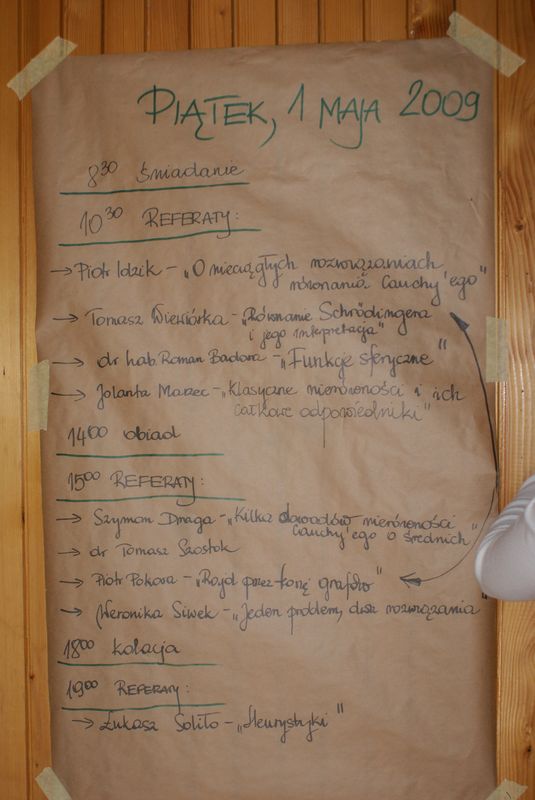 PIĄTEK, 1 MAJA 2009
8³⁰ śniadanie
10³⁰ REFERATY:
→ Piotr Idzik - „O nieciągłych rozwiązaniach
równania Cauchy'ego"
→ Tomasz Wiewiórka - „Równanie Schrödingera
i jego interpretacja"
→ dr hab. Roman Badora - „Funkcje sferyczne"
→ Jolanta Marzec - „Klasyczne nierówności i ich
całkowe odpowiedniki"
14⁰⁰ obiad
15⁰⁰ REFERATY:
→ Szymon Draga - „Kilka dowodów nierówności
Cauchy'ego o średnich"
→ dr Tomasz Szostok
→ Piotr Pokora - „Rajd przez konę grafów"
→ Weronika Siwek - „Jeden problem, dwa rozwiązania"
18⁰⁰ kolacja
19⁰⁰ REFERATY:
→ Łukasz Soliło - „Heurystyki"